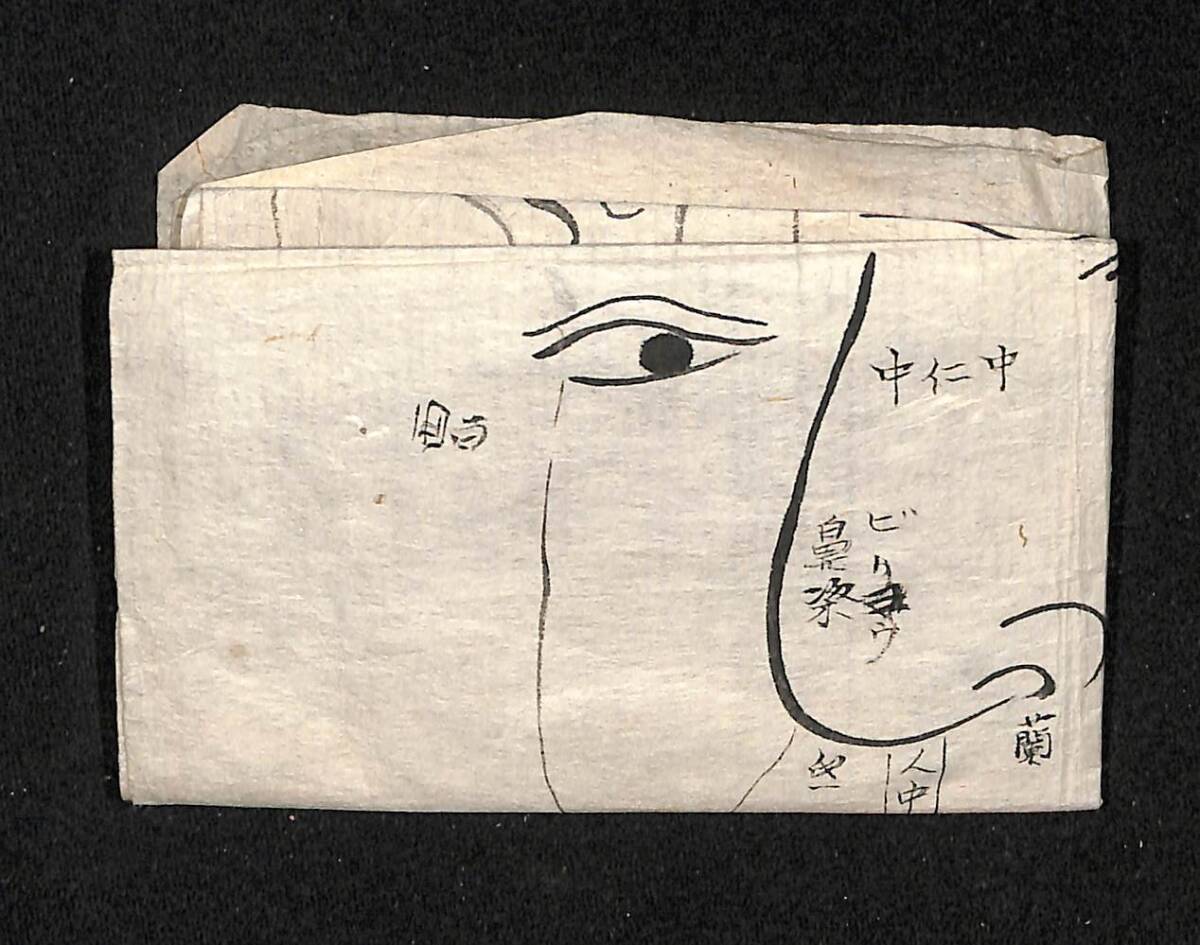 中仁中
ビリヨウ
鼻梁
蘭
人中